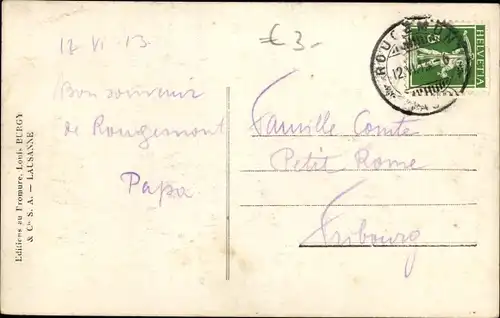 12 VI 13
€ 3-
Bon souvenir
de Rougemont
Papa
Famille Comte
Petit Rome
Fribourg
ROUGEMONT
HELVETIA
Editions au Fromure, Louis BURGY
& Cie S. A. — LAUSANNE